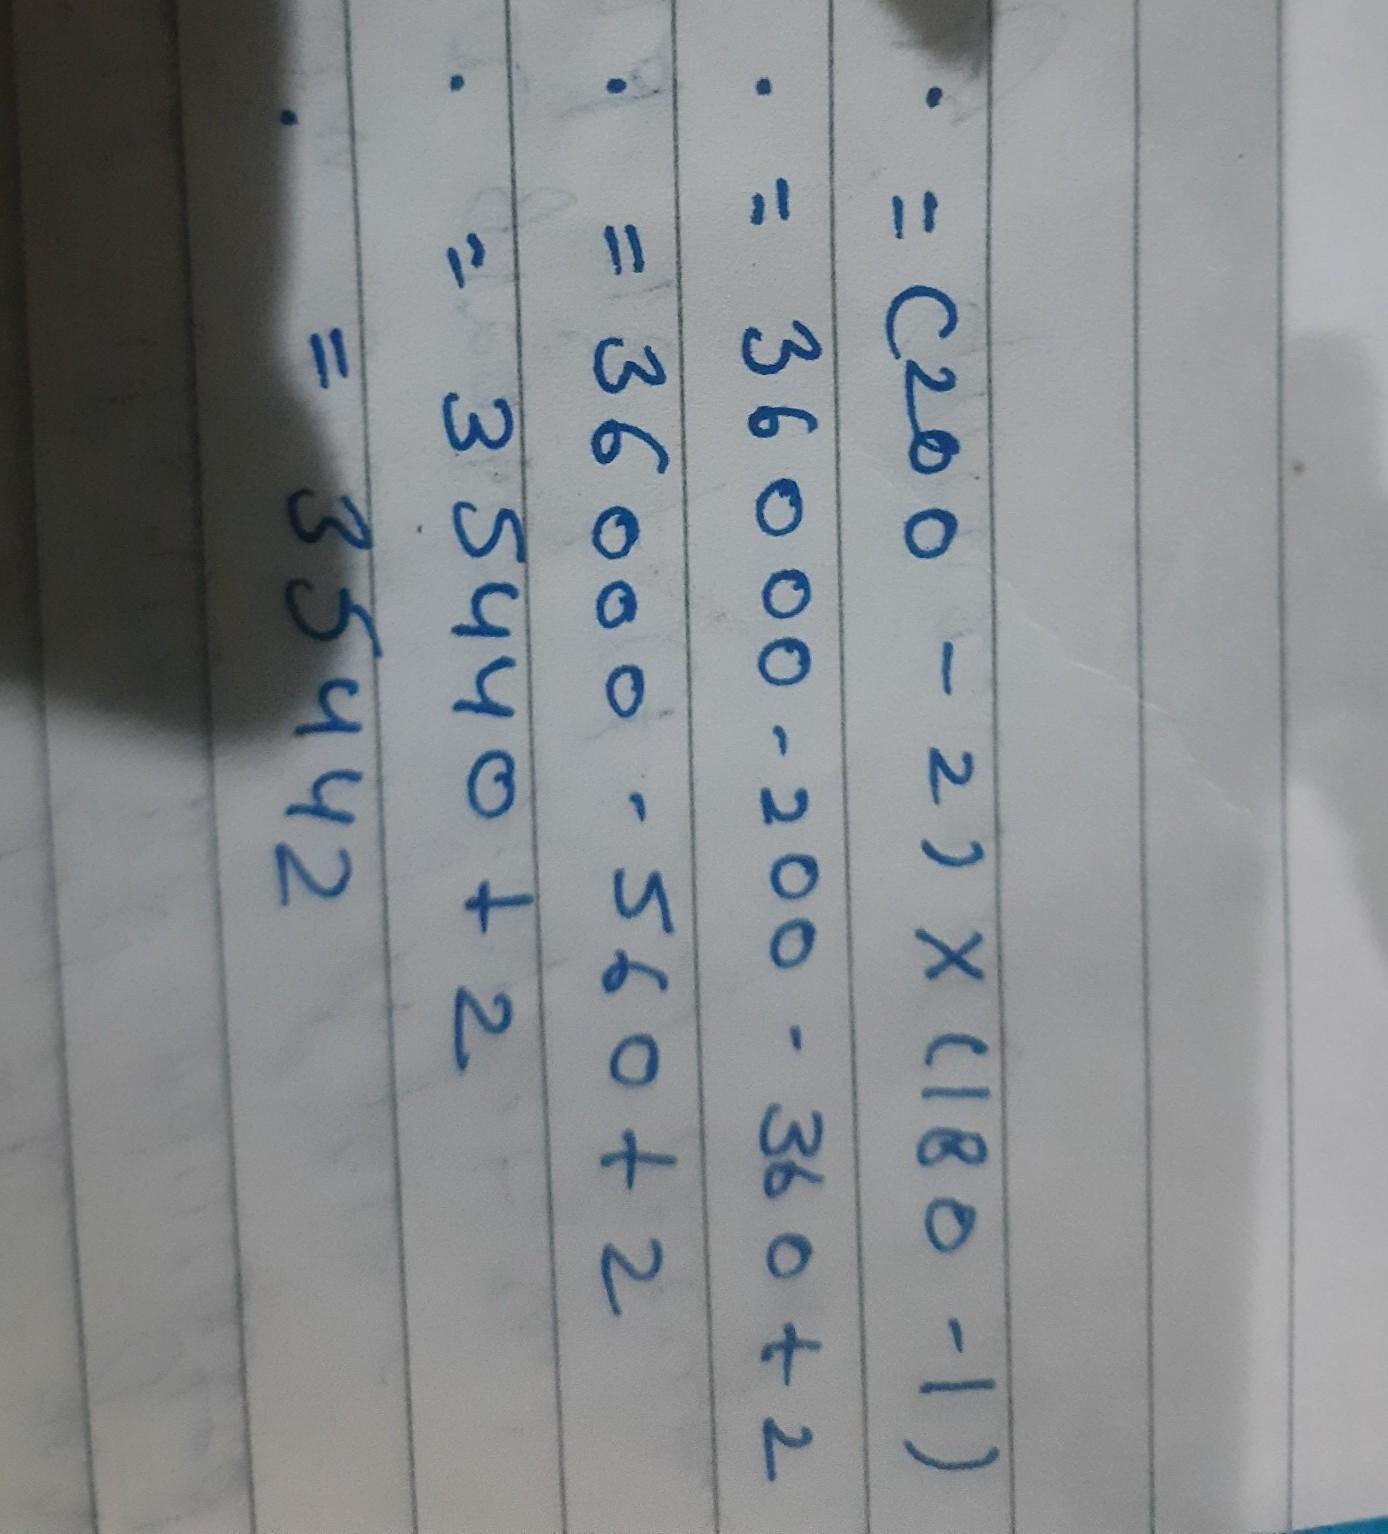 . = (200 - 2) X (180 - 1)
. = 36000 - 200 - 360 + 2
. = 36000 - 560 + 2
. = 35440 + 2
. = 35442